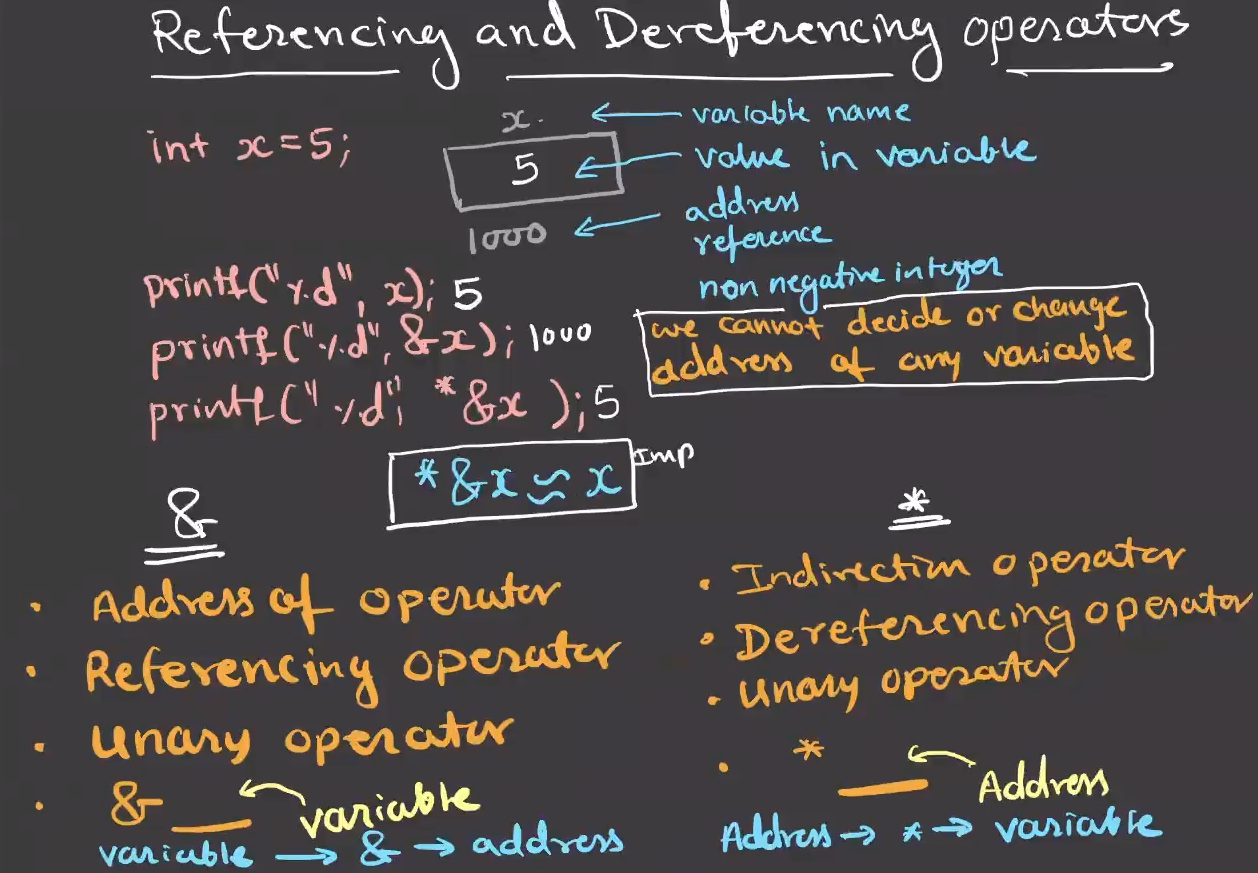 Referencing and Dereferencing operators
int x=5;
x.
← variable name
5
← value in variable
1000
← address
reference
non negative integer
printf("%d", x); 5
printf("%d", &x); 1000
printf("%d", *&x ); 5
we cannot decide or change
address of any variable
*&x ≃ x
Imp
&
• Address of operator
• Referencing operator
• Unary operator
• & __ ← variable
variable → & → address
*
• Indirection operator
• Dereferencing operator
• Unary operator
• * __ ← Address
Address → * → variable